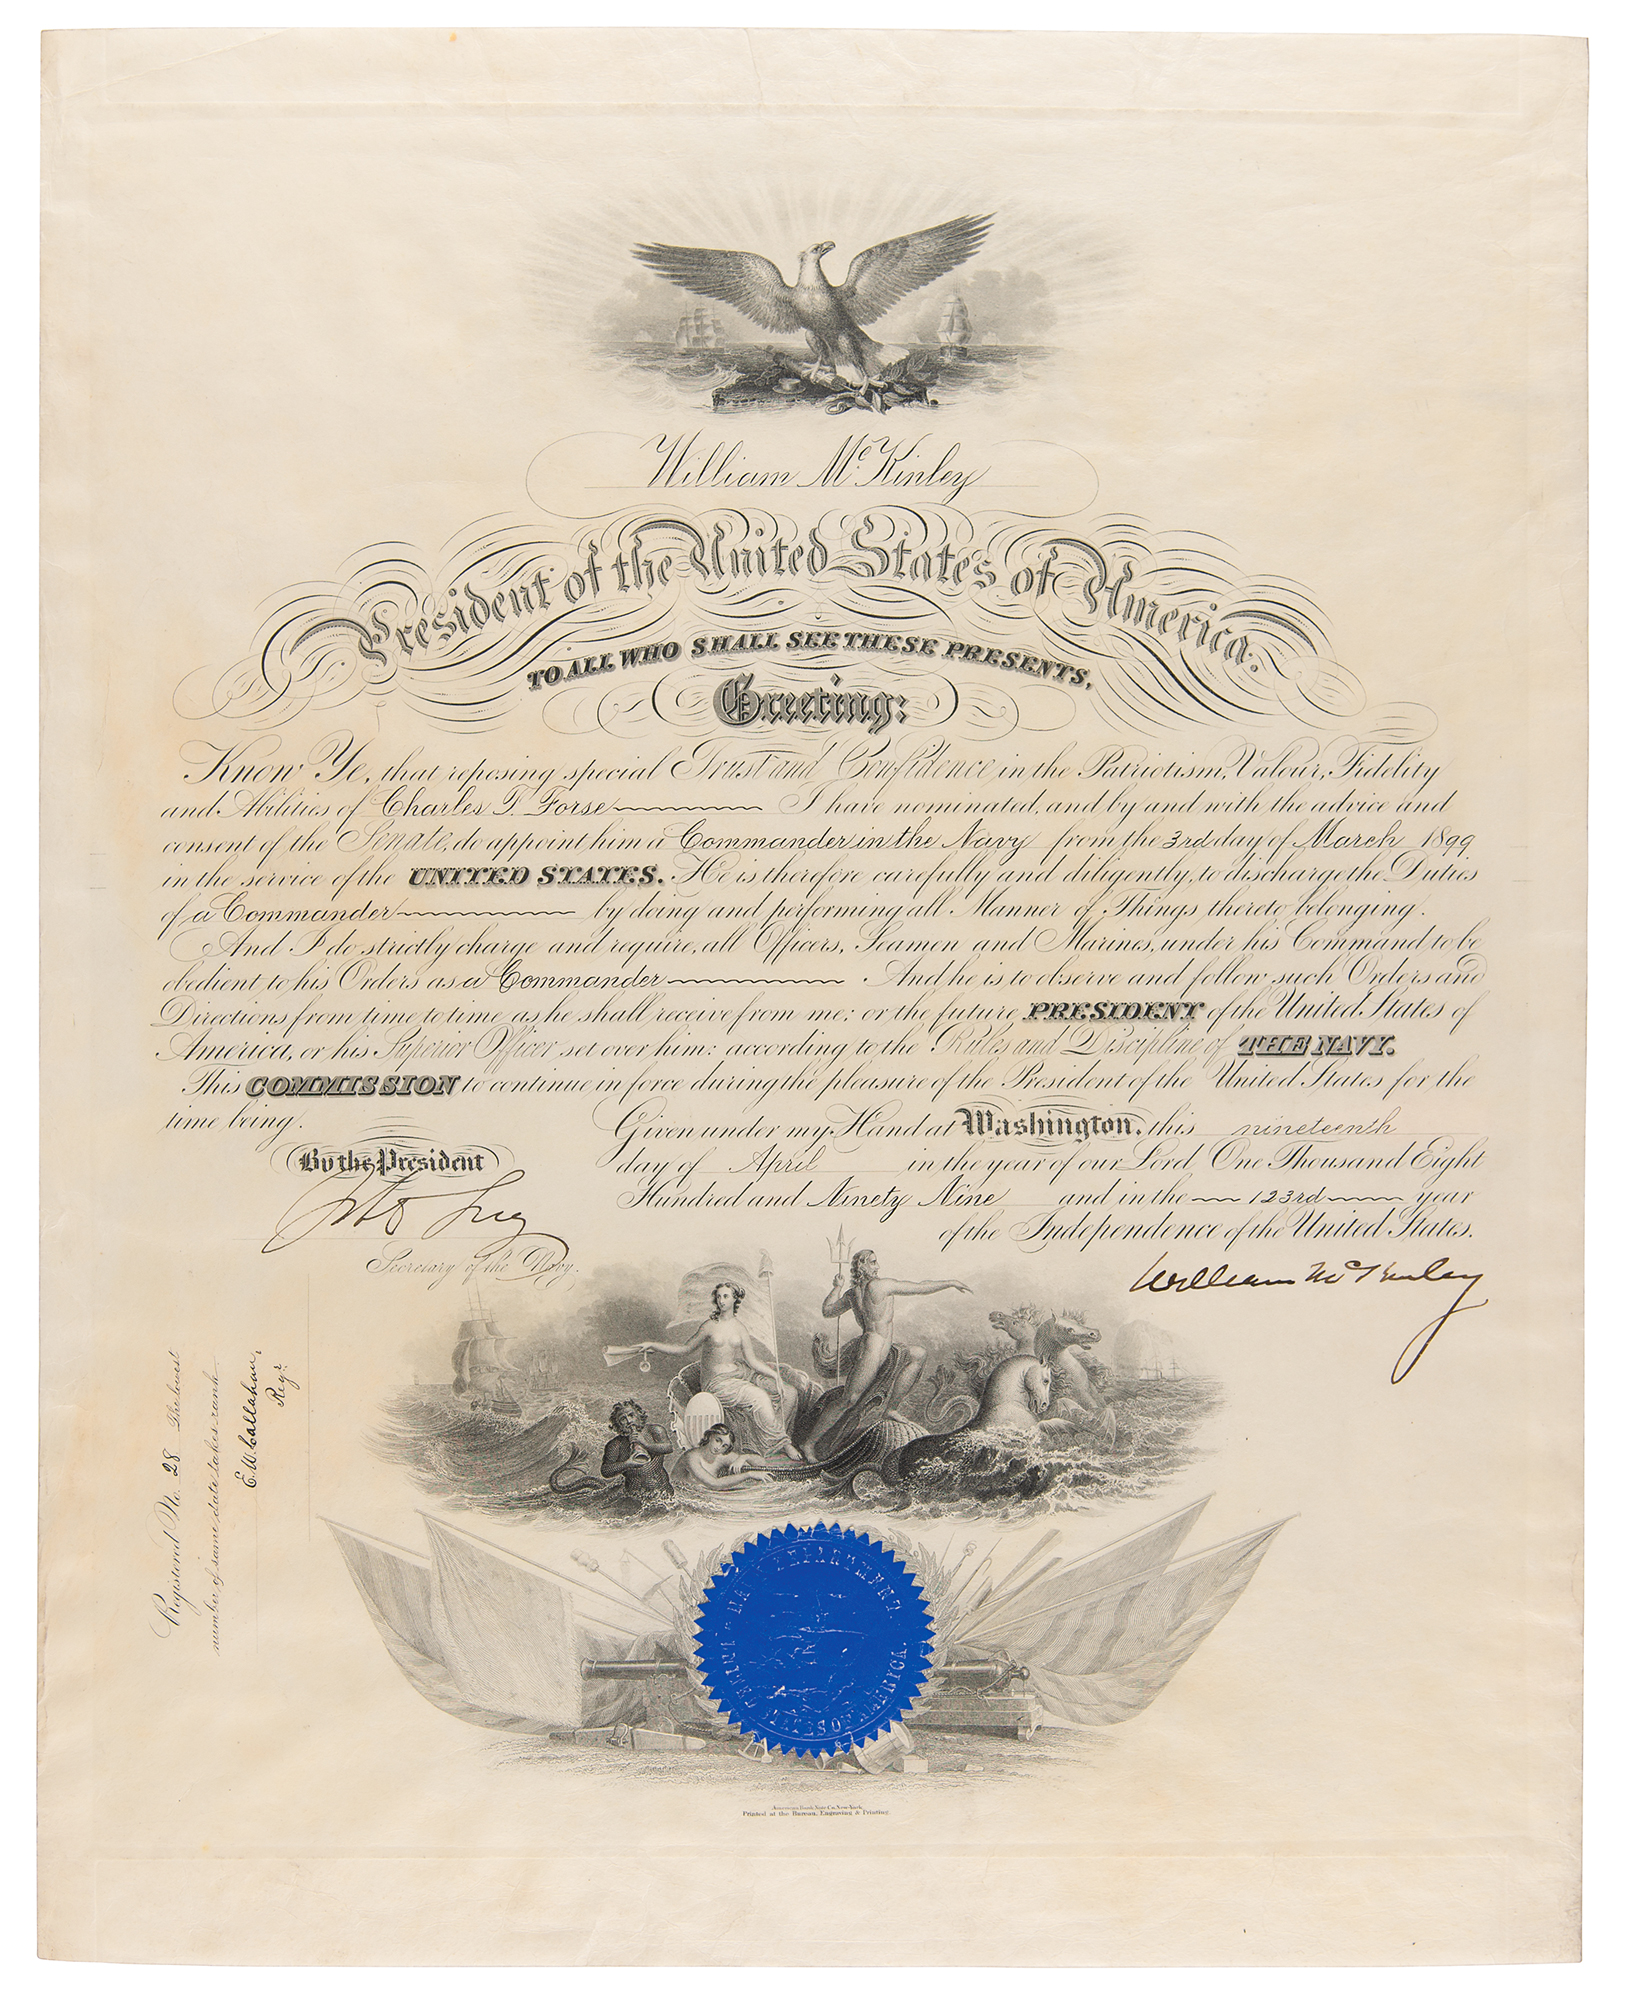 William McKinley
President of the United States of America.
TO ALL WHO SHALL SEE THESE PRESENTS,
Greeting:
Know Ye, that reposing special Trust and Confidence in the Patriotism, Valour, Fidelity
and Abilities of Charles T. Forse I have nominated, and by and with the advice and
consent of the Senate, do appoint him a Commander in the Navy from the 3rd day of March 1899
in the service of the UNITED STATES. He is therefore carefully and diligently, to discharge the Duties
of a Commander by doing and performing all Manner of Things thereto belonging.
And I do strictly charge and require, all Officers, Seamen and Marines, under his Command to be
obedient to his Orders as a Commander . And he is to observe and follow such Orders and
Directions from time to time as he shall receive from me; or the future PRESIDENT of the United States of
America, or his Superior Officer set over him: according to the Rules and Discipline of THE NAVY.
This COMMISSION to continue in force during the pleasure of the President of the United States for the
time being.
Given under my Hand at Washington, this nineteenth
day of April in the year of our Lord One Thousand Eight
Hundred and Ninety Nine and in the 123rd year
of the Independence of the United States.
By the President
Secretary of the Navy.
William McKinley
Registered No. 28 The lowest
number of same date takes rank.
E.W. Callahan,
Regr.
NAVY DEPARTMENT.
UNITED STATES OF AMERICA.
American Bank Note Co. New-York.
Printed at the Bureau, Engraving & Printing.